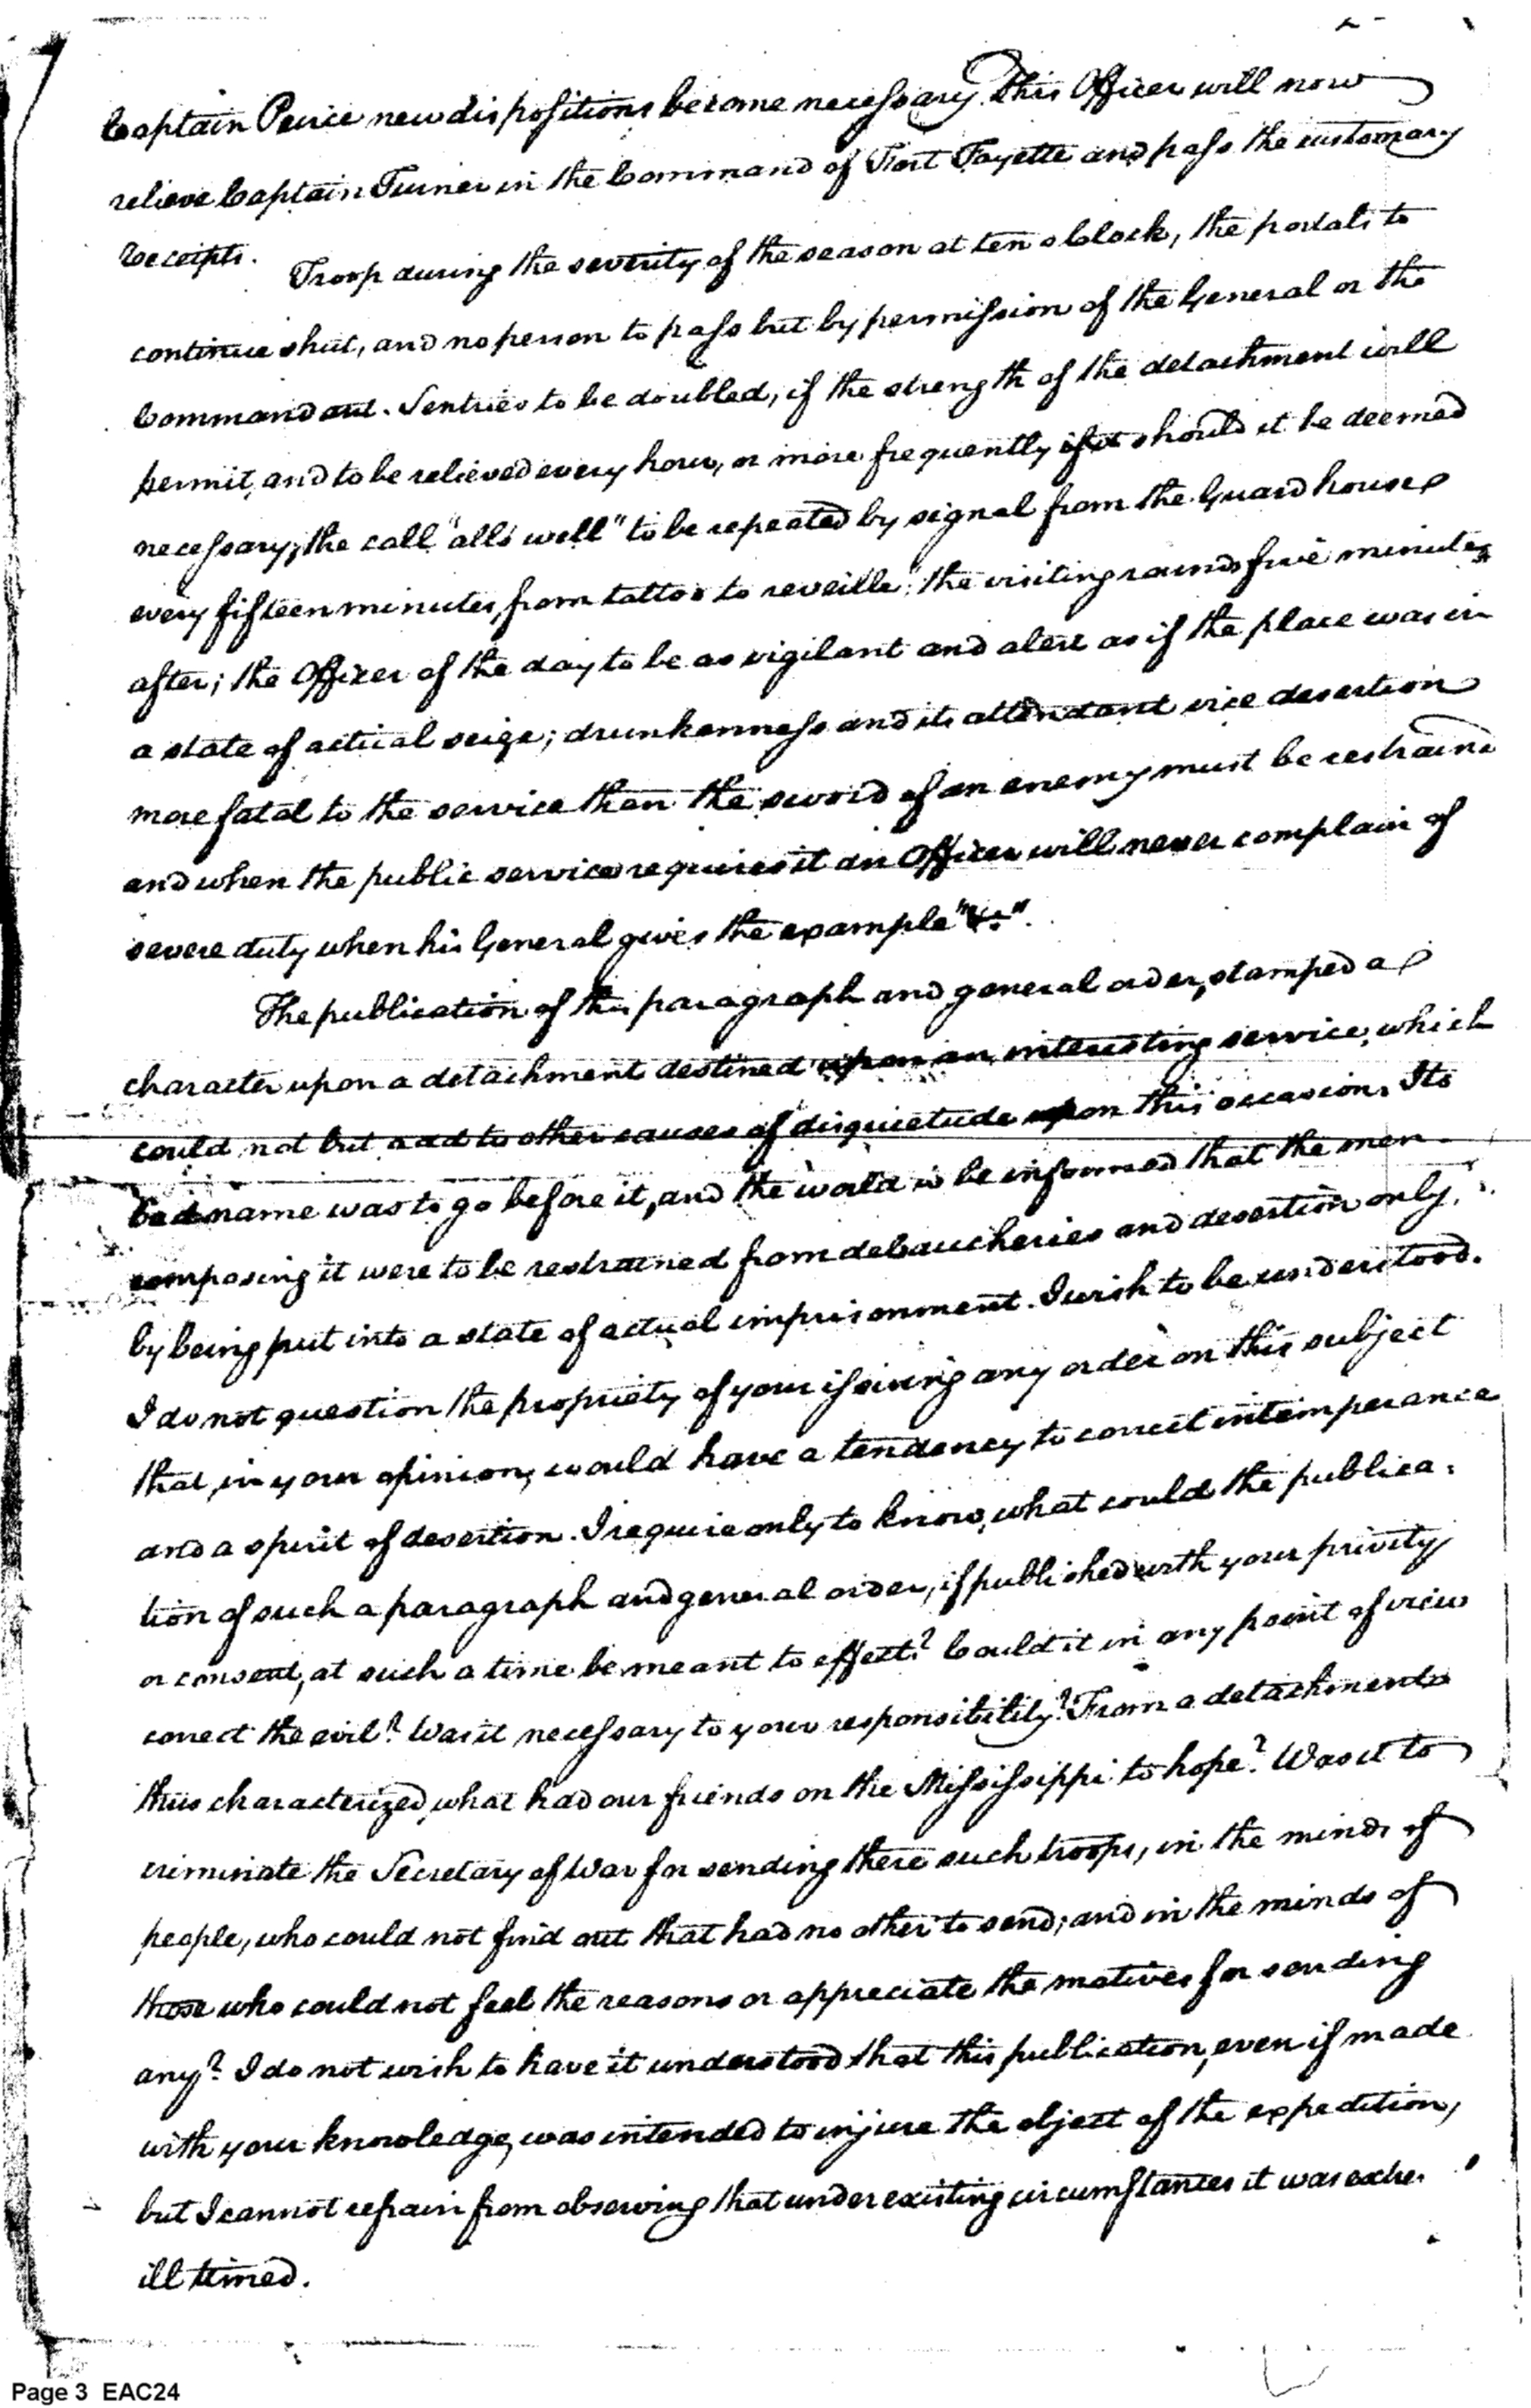 Captain Peirce new dispositions become necessary. This Officer will now
relieve Captain Turner in the Command of Fort Fayette and pass the customary
receipts.
Troop during the severity of the season at ten oClock, the portals to
continue shut, and no person to pass but by permission of the General or the
Commandant. Sentries to be doubled, if the strength of the detachment will
permit, and to be relieved every hour, or more frequently should it be deemed
necessary; the call "alls well" to be repeated by signal from the Guard house
every fifteen minutes, from tattoo to reveille; the visiting rounds five minutes
after; the Officer of the day to be as vigilant and alert as if the place was in
a state of actual seige; drunkenness and its attendant vice desertion
more fatal to the service than the sword of an enemy must be restraind
and when the public service requires it an Officer will never complain of
severe duty when his General gives the example "&c."
The publication of this paragraph and general order, stamped a
character upon a detachment destined upon an interesting service, which
could not but add to other causes of disquietude upon this occasion. Its
bad name was to go before it, and the world to be informed that the men
composing it were to be restrained from debaucheries and desertion only,
by being put into a state of actual imprisonment. I wish to be understood.
I do not question the propriety of your issuing any order on this subject
that, in your opinion, would have a tendency to correct intemperance
and a spirit of desertion. I require only to know, what could the publica-
tion of such a paragraph and general order, if published with your privity
or consent, at such a time be meant to effect? Could it in any point of view
correct the evil? Was it necessary to your responsibility? From a detachment
thus characterized, what had our friends on the Mississippi to hope? Was it to
criminate the Secretary of War for sending there such troops, in the minds of
people, who could not find out that had no other to send; and in the minds of
those who could not feel the reasons or appreciate the motives for sending
any? I do not wish to have it understood that this publication, even if made
with your knowledge, was intended to injure the object of the expedition,
but I cannot refrain from observing that under existing circumstances it was
ill timed.
Page 3 EAC24